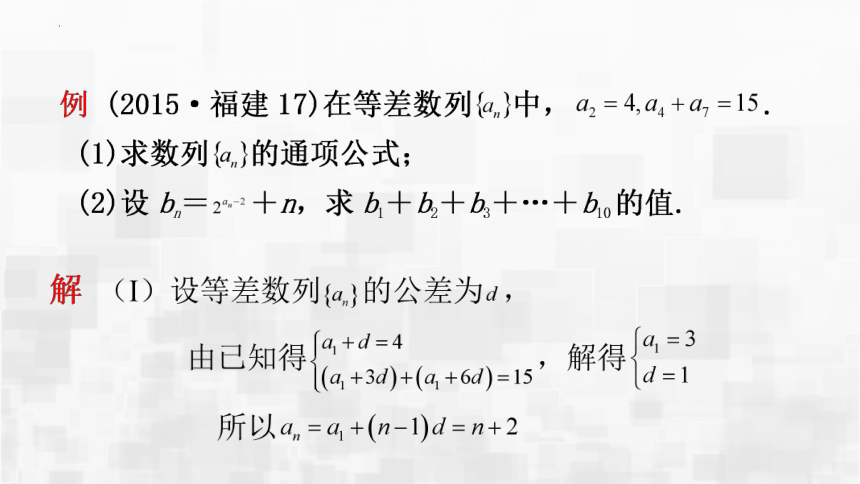 例 (2015·福建 17)在等差数列{aₙ}中，a₂ = 4, a₄ + a₇ = 15.
(1)求数列{aₙ}的通项公式；
(2)设 bₙ＝2^{aₙ−2}＋n，求 b₁＋b₂＋b₃＋…＋b₁₀的值.
解 （I）设等差数列{aₙ}的公差为d，
由已知得{a₁ + d = 4
(a₁ + 3d) + (a₁ + 6d) = 15，解得{a₁ = 3
d = 1
所以 aₙ = a₁ + (n−1)d = n + 2